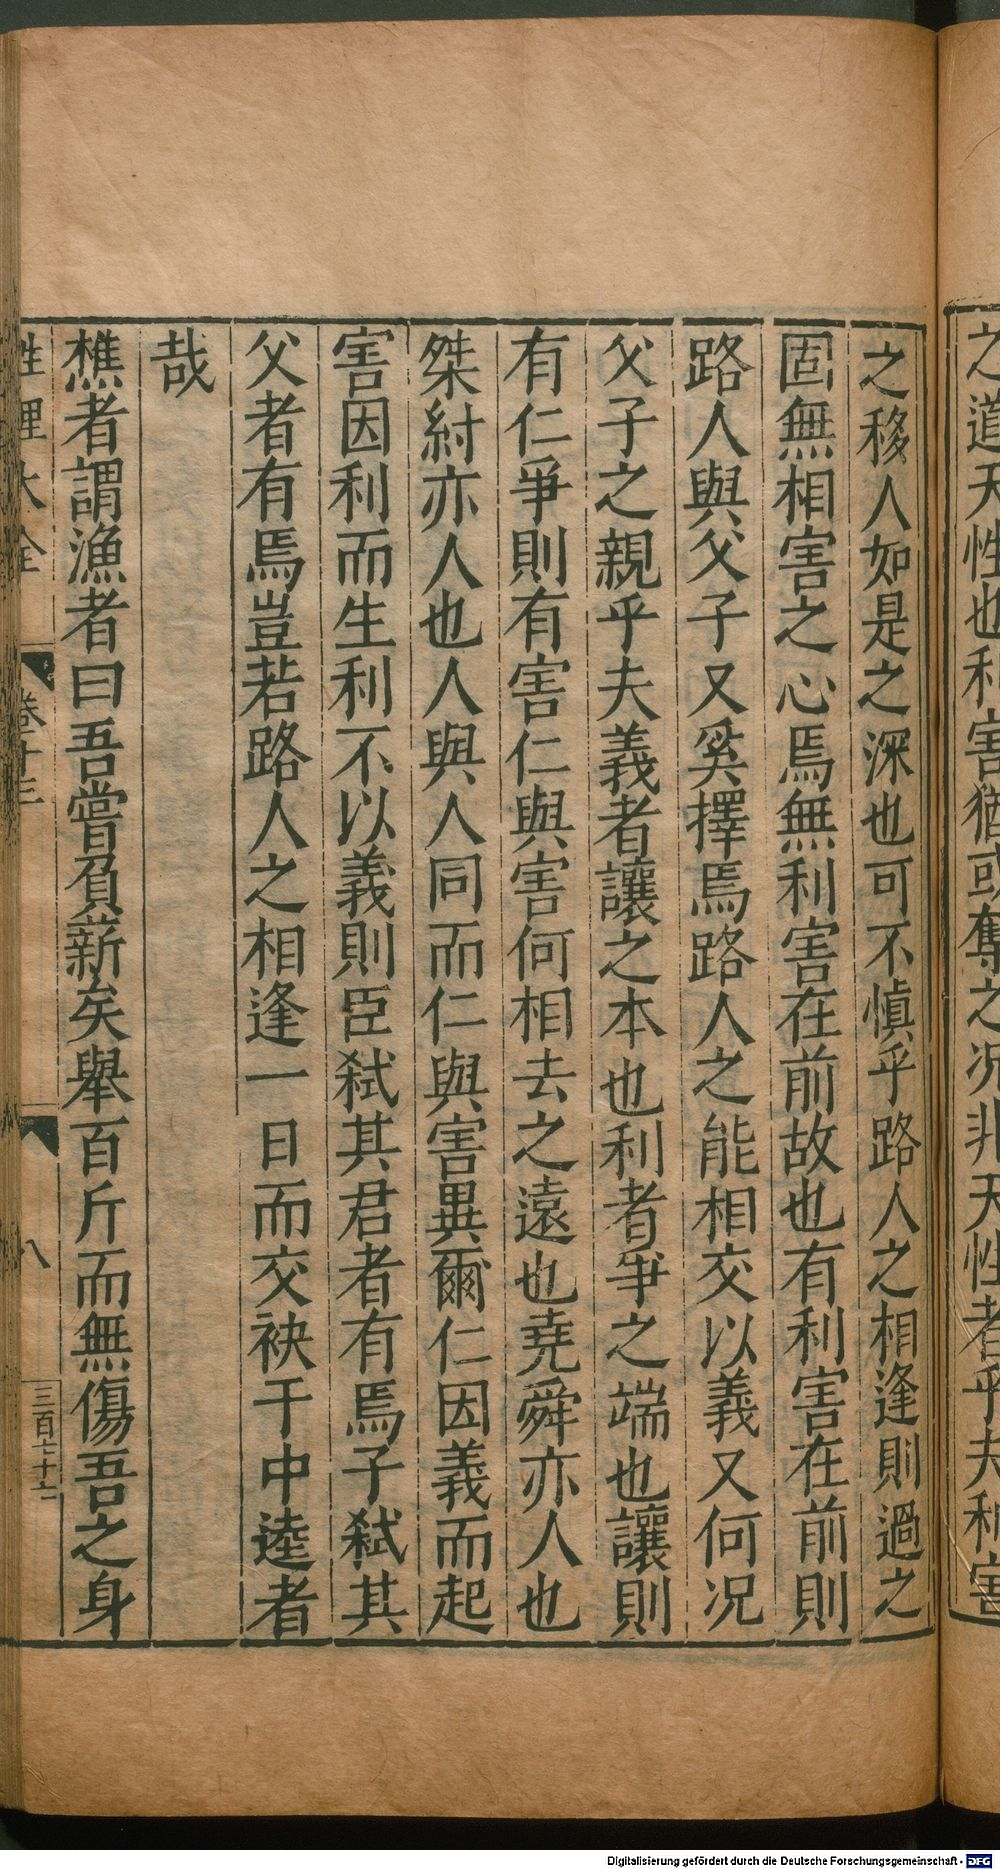 之道天性也利害猶或奪之况非天性者乎夫利害
之移人如是之深也可不慎乎路人之相逢則過之
固無相害之心焉無利害在前故也有利害在前則
路人與父子又奚擇焉路人之能相交以義又何况
父子之親乎夫義者讓之本也利者爭之端也讓則
有仁爭則有害仁與害何相去之遠也堯舜亦人也
桀紂亦人也人與人同而仁與害異爾仁因義而起
害因利而生利不以義則臣弑其君者有焉子弑其
父者有焉豈若路人之相逢一日而交袂于中逵者
哉
樵者謂漁者曰吾嘗負薪矣舉百斤而無傷吾之身
性理大全 卷十三 八
三百七十七
Digitalisierung gefördert durch die Deutsche Forschungsgemeinschaft - DFG